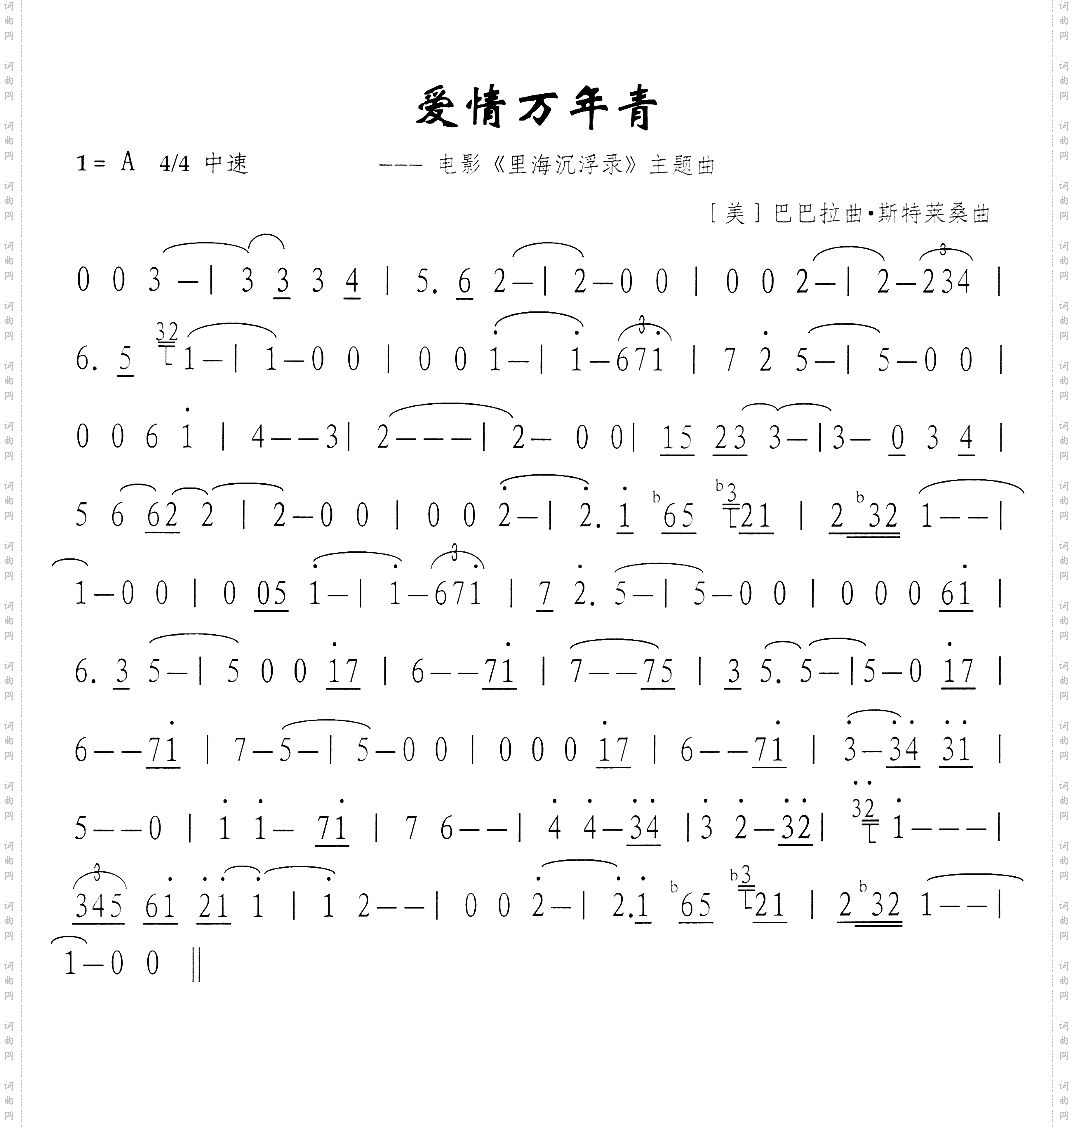 爱情万年青
1= A 4/4 中速 --- 电影《里海沉浮录》主题曲
[美] 巴巴拉曲·斯特莱桑曲
0 0 3 – | 3 3 3 4 | 5. 6 2 – | 2 – 0 0 | 0 0 2 – | 2 – 2 3 4 |
6. 5 32 1 – | 1 – 0 0 | 0 0 1̇ – | 1̇ – 6 7 1̇ | 7 2̇ 5 – | 5 – 0 0 |
0 0 6 1̇ | 4 – – 3 | 2 – – – | 2 – 0 0 | 1 5 2 3 3 – | 3 – 0 3 4 |
5 6 6 2 2 | 2 – 0 0 | 0 0 2̇ – | 2̇. 1̇ b6 5 b3 2 1 | 2 b3 2 1 – – |
1 – 0 0 | 0 0 5 1̇ – | 1̇ – 6 7 1̇ | 7 2̇. 5 – | 5 – 0 0 | 0 0 0 6 1̇ |
6. 3 5 – | 5 0 0 1̇ 7 | 6 – – 7 1̇ | 7 – – 7 5 | 3 5. 5 – | 5 – 0 1̇ 7 |
6 – – 7 1̇ | 7 – 5 – | 5 – 0 0 | 0 0 0 1̇ 7 | 6 – – 7 1̇ | 3̇ – 3̇ 4̇ 3̇ 1̇ |
5 – – 0 | 1̇ 1̇ – 7 1̇ | 7 6 – – | 4̇ 4̇ – 3̇ 4̇ | 3̇ 2̇ – 3̇ 2̇ | 3̇2̇ 1̇ – – – |
3 4 5 6 1̇ 2̇ 1̇ 1̇ | 1̇ 2 – – | 0 0 2̇ – | 2̇. 1̇ b6 5 b3 2 1 | 2 b3 2 1 – – |
1 – 0 0 ‖
词曲网